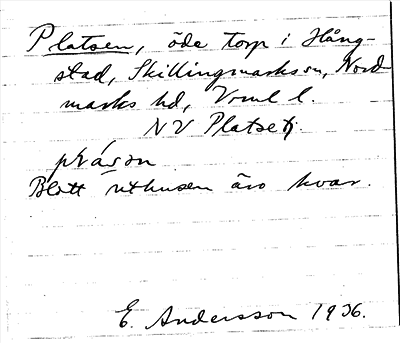 Platsen, öde torp i Hång-
stad, Skillingmarks sn, Nord
marks hd, Vrml l.
NV Platsen
plásǝn
Blott uthusen äro kvar.
E. Andersson 1936.